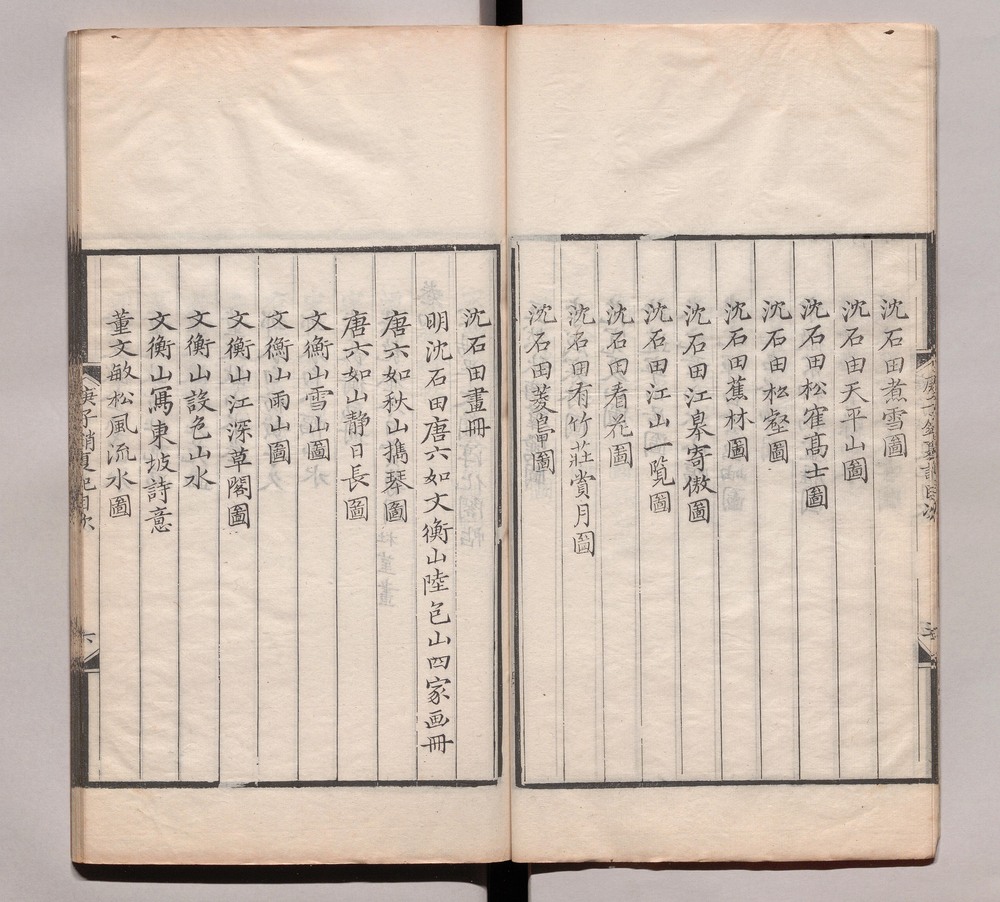 沈石田煮雪圖
沈石田天平山圖
沈石田松崔高士圖
沈石田松壑圖
沈石田蕉林圖
沈石田江皋寄傲圖
沈石田江山一覧圖
沈石田看花圖
沈石田有竹莊賞月圖
沈石田菱鼂圖
沈石田畫冊
明沈石田唐六如文衡山陸包山四家画冊
唐六如秋山攜琴圖
唐六如山静日長圖
文衡山雪山圖
文衡山雨山圖
文衡山江深草閣圖
文衡山設色山水
文衡山寫東坡詩意
董文敏松風流水圖
庚子銷夏記目次
六